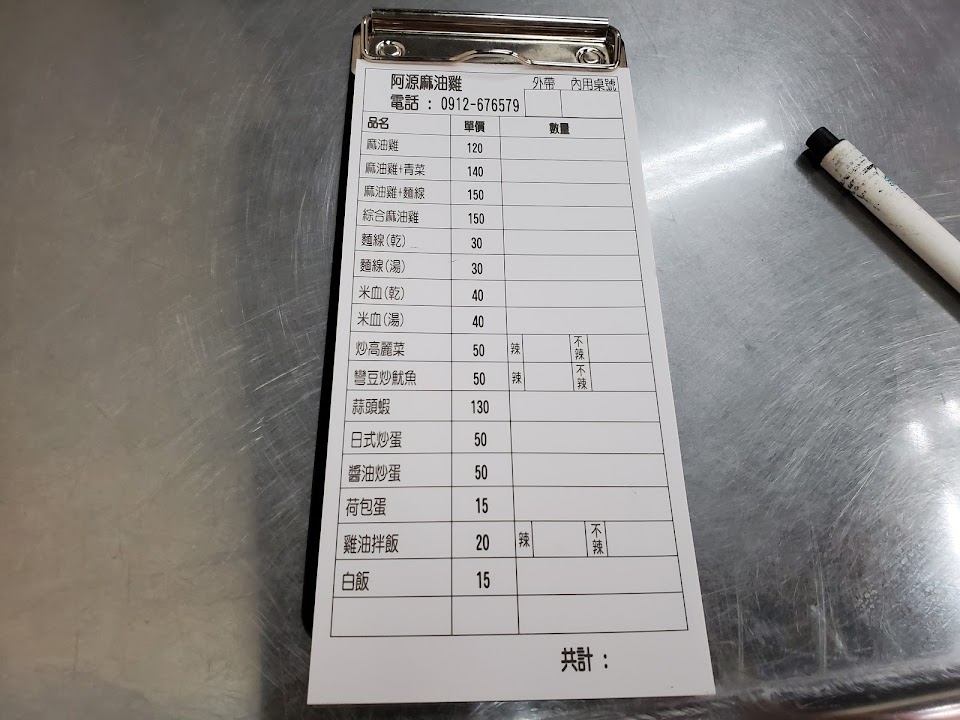 阿源麻油雞 外帶 內用桌號
電話：0912-676579
品名 單價 數量
麻油雞 120
麻油雞+青菜 140
麻油雞+麵線 150
綜合麻油雞 150
麵線(乾) 30
麵線(湯) 30
米血(乾) 40
米血(湯) 40
炒高麗菜 50 辣 不辣
彎豆炒魷魚 50 辣 不辣
蒜頭蝦 130
日式炒蛋 50
醬油炒蛋 50
荷包蛋 15
雞油拌飯 20 辣 不辣
白飯 15
共計：